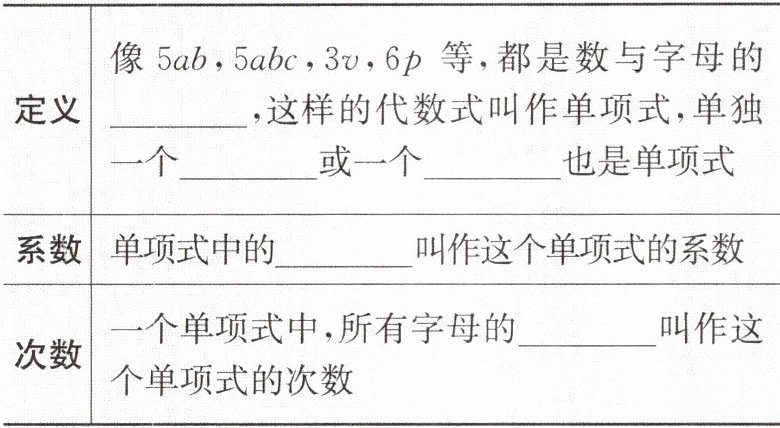 定义
像 5ab，5abc，3v，6p 等，都是数与字母的
________，这样的代数式叫作单项式，单独
一个________或一个________也是单项式
系数
单项式中的________叫作这个单项式的系数
次数
一个单项式中，所有字母的________叫作这
个单项式的次数